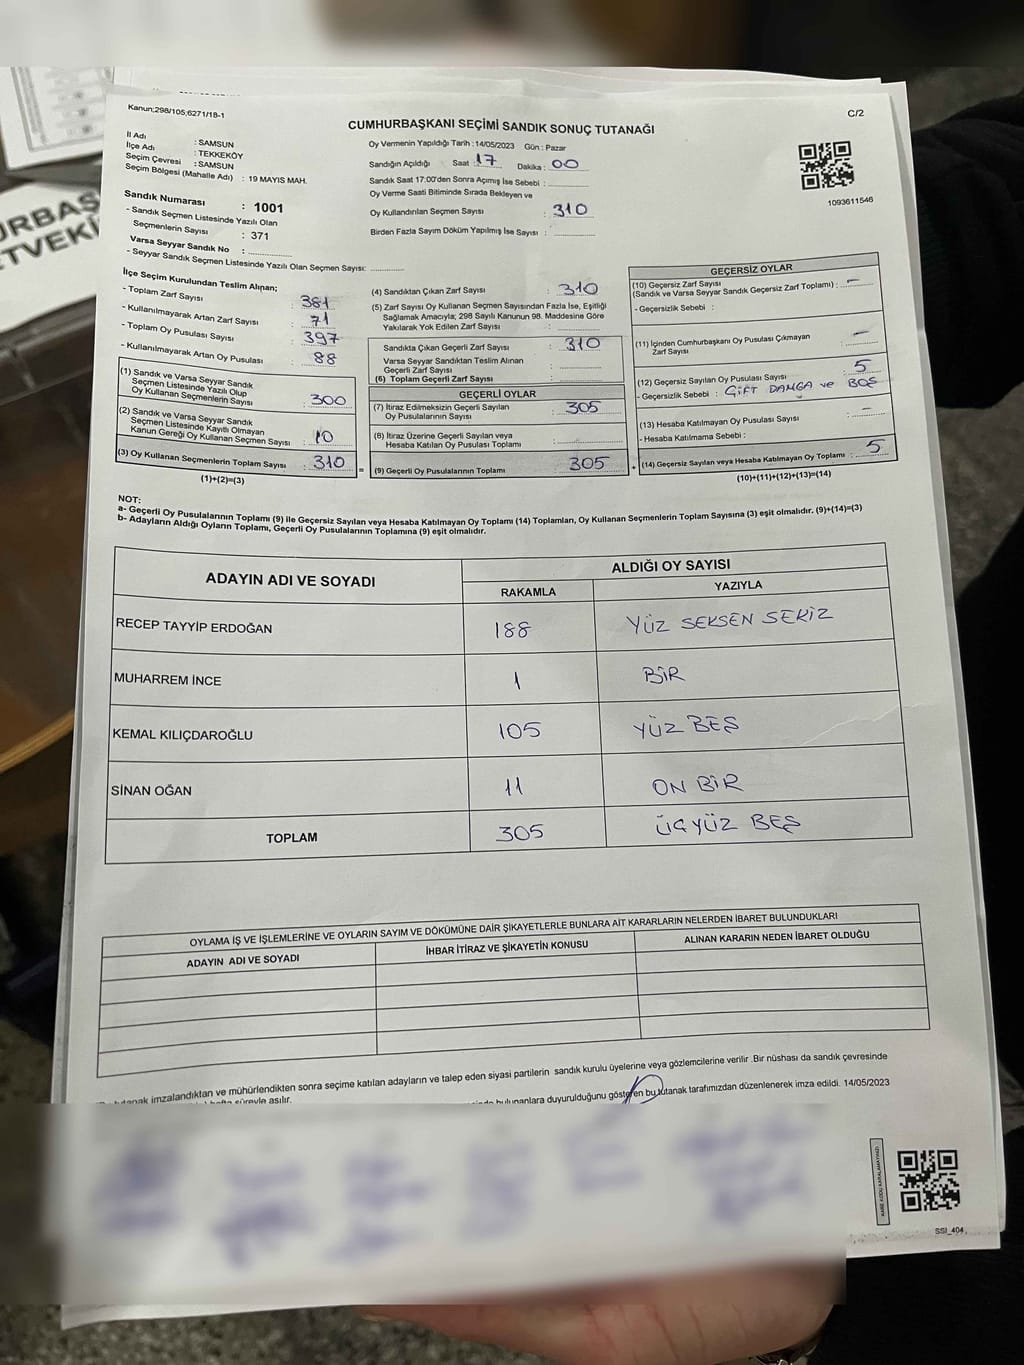 Kanun;298/105;6271/18-1
C/2
CUMHURBAŞKANI SEÇİMİ SANDIK SONUÇ TUTANAĞI
İl Adı : SAMSUN
İlçe Adı : TEKKEKÖY
Seçim Çevresi : SAMSUN
Seçim Bölgesi (Mahalle Adı) : 19 MAYIS MAH.
Sandık Numarası : 1001
- Sandık Seçmen Listesinde Yazılı Olan
Seçmenlerin Sayısı : 371
Varsa Seyyar Sandık No :
- Seyyar Sandık Seçmen Listesinde Yazılı Olan Seçmen Sayısı:
Oy Vermenin Yapıldığı Tarih : 14/05/2023 Gün : Pazar
Sandığın Açıldığı Saat : 17 Dakika : 00
Sandık Saat 17:00'den Sonra Açılmış İse Sebebi :
Oy Verme Saati Bitiminde Sırada Bekleyen ve
Oy Kullandırılan Seçmen Sayısı : 310
Birden Fazla Sayım Döküm Yapılmış İse Sayısı :
1093611546
İlçe Seçim Kurulundan Teslim Alınan;
- Toplam Zarf Sayısı : 381
- Kullanılmayarak Artan Zarf Sayısı : 71
- Toplam Oy Pusulası Sayısı : 397
- Kullanılmayarak Artan Oy Pusulası : 88
(1) Sandık ve Varsa Seyyar Sandık
Seçmen Listesinde Yazılı Olup
Oy Kullanan Seçmenlerin Sayısı : 300
(2) Sandık ve Varsa Seyyar Sandık
Seçmen Listesinde Kayıtlı Olmayan
Kanun Gereği Oy Kullanan Seçmen Sayısı : 10
(3) Oy Kullanan Seçmenlerin Toplam Sayısı : 310
(1)+(2)=(3)
=
(4) Sandıktan Çıkan Zarf Sayısı : 310
(5) Zarf Sayısı Oy Kullanan Seçmen Sayısından Fazla İse, Eşitliği
Sağlamak Amacıyla; 298 Sayılı Kanunun 98. Maddesine Göre
Yakılarak Yok Edilen Zarf Sayısı :
Sandıkta Çıkan Geçerli Zarf Sayısı : 310
Varsa Seyyar Sandıktan Teslim Alınan
Geçerli Zarf Sayısı :
(6) Toplam Geçerli Zarf Sayısı :
GEÇERLİ OYLAR
(7) İtiraz Edilmeksizin Geçerli Sayılan
Oy Pusulalarının Sayısı : 305
(8) İtiraz Üzerine Geçerli Sayılan veya
Hesaba Katılan Oy Pusulası Toplamı :
(9) Geçerli Oy Pusulalarının Toplamı : 305
+
GEÇERSİZ OYLAR
(10) Geçersiz Zarf Sayısı
(Sandık ve Varsa Seyyar Sandık Geçersiz Zarf Toplamı) : —
- Geçersizlik Sebebi :
(11) İçinden Cumhurbaşkanı Oy Pusulası Çıkmayan
Zarf Sayısı : —
(12) Geçersiz Sayılan Oy Pusulası Sayısı : 5
- Geçersizlik Sebebi : ÇİFT DAMGA ve BOŞ
(13) Hesaba Katılmayan Oy Pusulası Sayısı : —
- Hesaba Katılmama Sebebi :
(14) Geçersiz Sayılan veya Hesaba Katılmayan Oy Toplamı : 5
(10)+(11)+(12)+(13)=(14)
NOT:
a- Geçerli Oy Pusulalarının Toplamı (9) ile Geçersiz Sayılan veya Hesaba Katılmayan Oy Toplamı (14) Toplamları, Oy Kullanan Seçmenlerin Toplam Sayısına (3) eşit olmalıdır. (9)+(14)=(3)
b- Adayların Aldığı Oyların Toplamı, Geçerli Oy Pusulalarının Toplamına (9) eşit olmalıdır.
ADAYIN ADI VE SOYADI
ALDIĞI OY SAYISI
RAKAMLA YAZIYLA
RECEP TAYYİP ERDOĞAN 188 YÜZ SEKSEN SEKİZ
MUHARREM İNCE 1 BİR
KEMAL KILIÇDAROĞLU 105 YÜZ BEŞ
SİNAN OĞAN 11 ON BİR
TOPLAM 305 ÜÇYÜZ BEŞ
OYLAMA İŞ VE İŞLEMLERİNE VE OYLARIN SAYIM VE DÖKÜMÜNE DAİR ŞİKAYETLERLE BUNLARA AİT KARARLARIN NELERDEN İBARET BULUNDUKLARI
ADAYIN ADI VE SOYADI İHBAR İTİRAZ VE ŞİKAYETİN KONUSU ALINAN KARARIN NEDEN İBARET OLDUĞU
tutanak imzalandıktan ve mühürlendikten sonra seçime katılan adayların ve talep eden siyasi partilerin sandık kurulu üyelerine veya gözlemcilerine verilir .Bir nüshası da sandık çevresinde
hafta süreyle asılır.
bulunanlara duyurulduğunu gösteren bu tutanak tarafımızdan düzenlenerek imza edildi. 14/05/2023
SSI_404